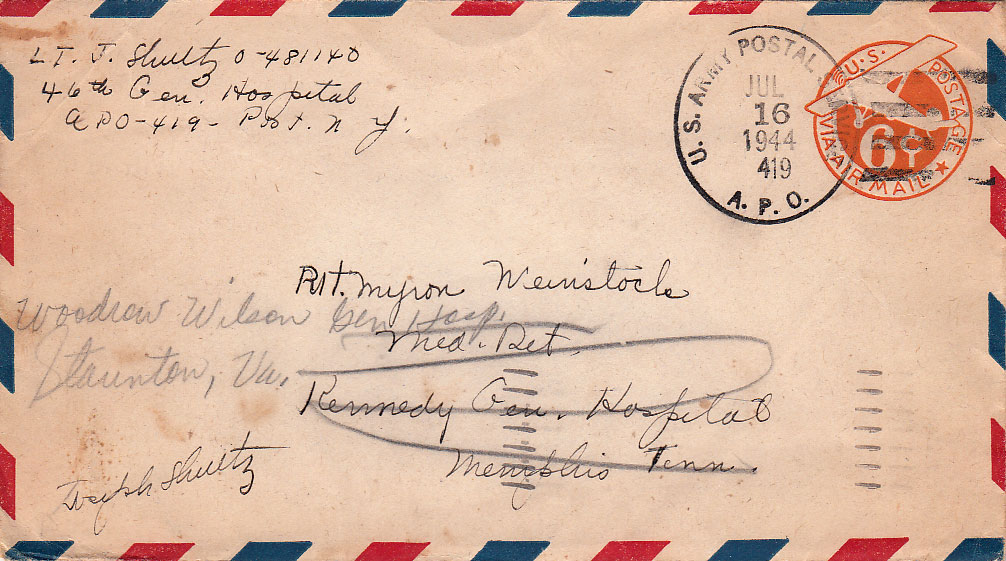 Lt. J. Shultz O-481140
46th Gen. Hospital
APO-419- Post. N Y.
U.S. ARMY POSTAL SERVICE
JUL
16
1944
419
A. P. O.
U.S. POSTAGE
6¢
VIA AIR MAIL
Pvt. Myron Weinstock
Med. Det.
Kennedy Gen. Hospital
Memphis Tenn.
Woodrow Wilson Gen Hosp.
Staunton, Va.
Joseph Shultz